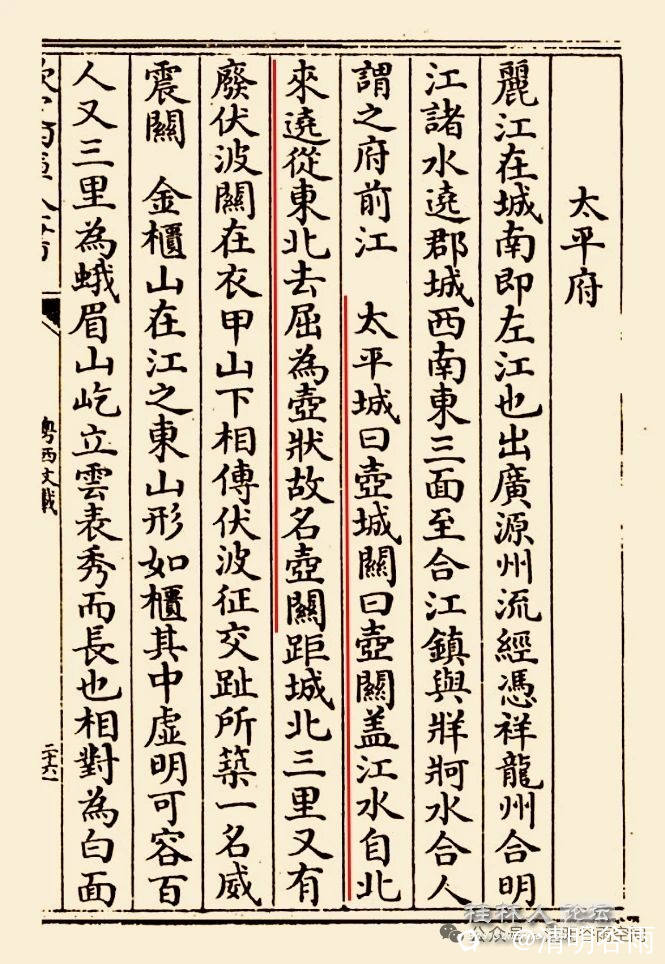 太平府
麗江在城南即左江也出廣源州流經憑祥龍州合明
江諸水遶郡城西南東三面至合江鎮與牂牁水合人
謂之府前江　太平城曰壺城關曰壺關盖江水自北
來遶從東北去屈為壺狀故名壺關距城北三里又有
廢伏波關在衣甲山下相傳伏波征交趾所築一名威
震關　金櫃山在江之東山形如櫃其中虛明可容百
人又三里為蛾眉山屹立雲表秀而長也相對為白面
粵西文載
二十六
桂林人论坛
公众号
清明谷雨